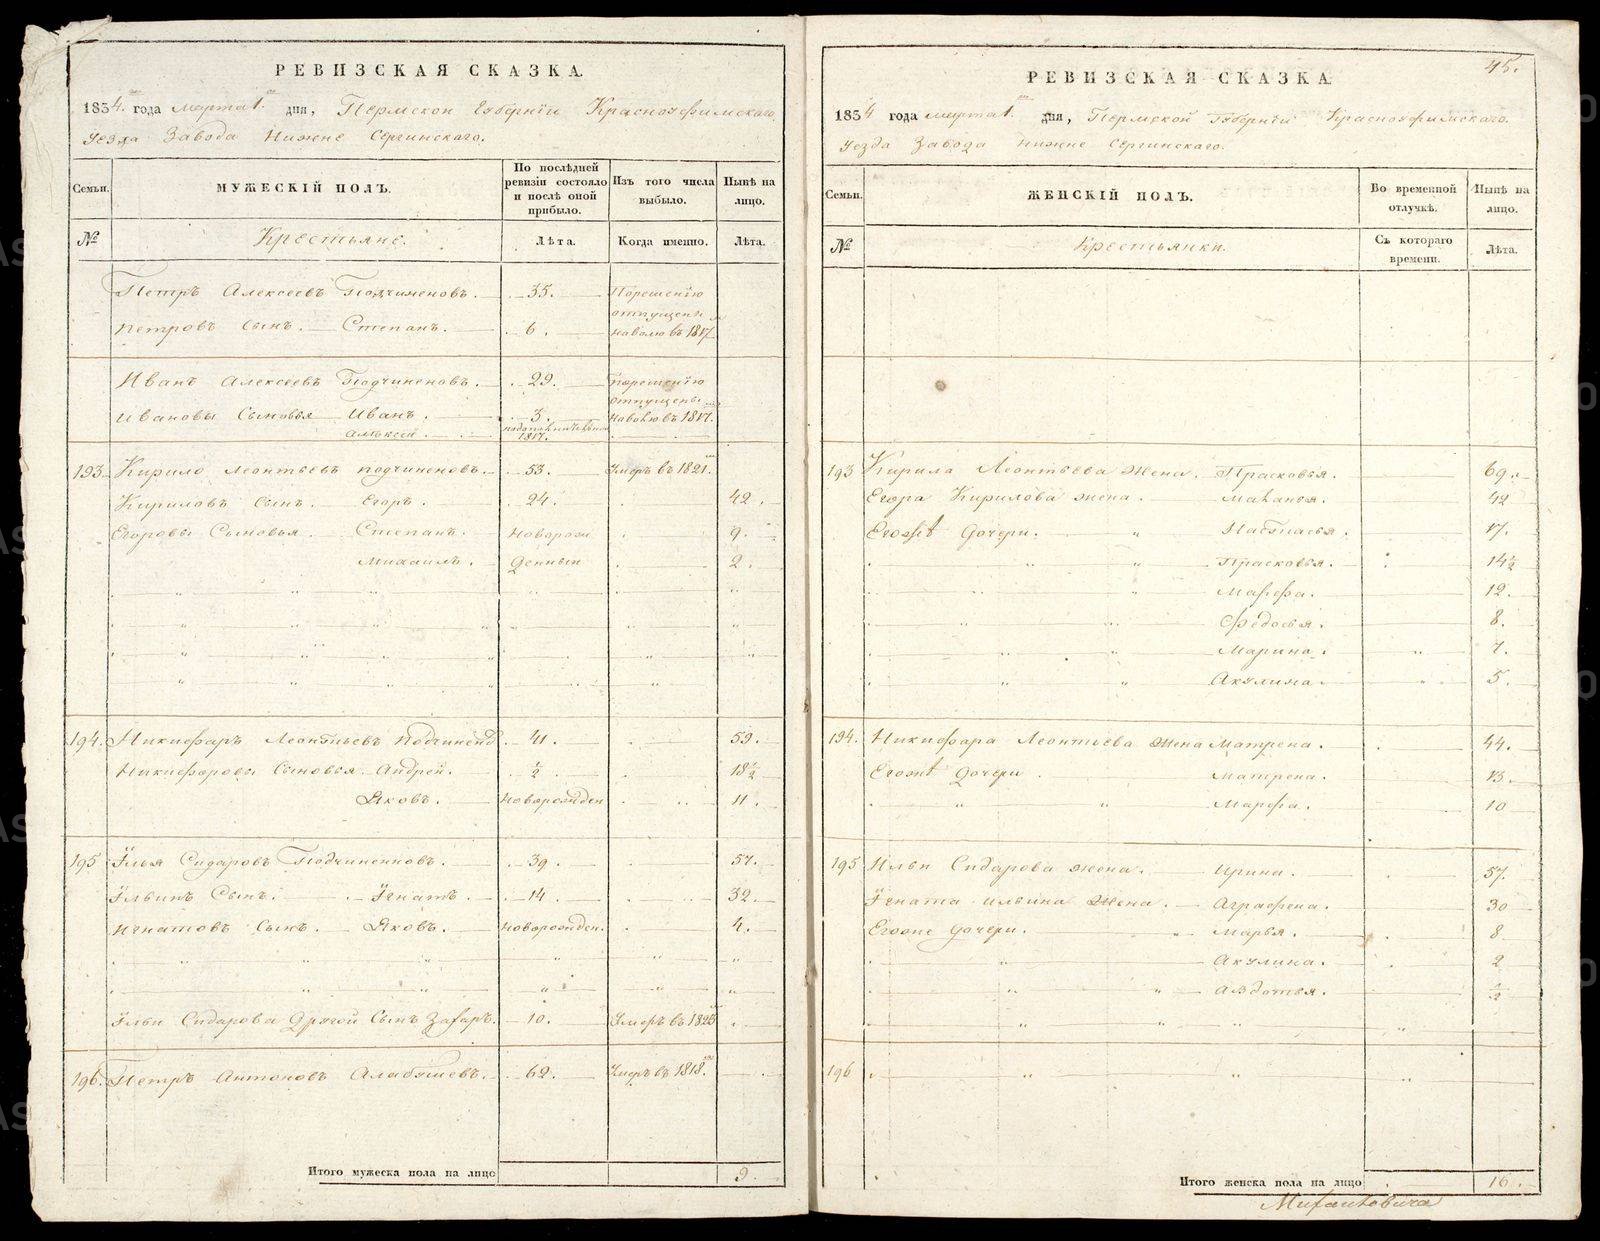 РЕВИЗСКАЯ СКАЗКА.
1834 года марта 1 дня, Пермской Губернiи Красноуфимскаго
уезда Завода Нижне Сергинскаго.
Семьи.
МУЖЕСКIЙ ПОЛЪ.
По послѣдней ревизiи состояло и послѣ оной прибыло.
Изъ того числа выбыло.
Нынѣ на лицо.
№
Крестьяне.
Лѣта.
Когда именно.
Лѣта.
Петръ Алексеевъ Подчиненовъ. 35. Порешенiю
отпущены
Петровъ сынъ. Степанъ. 6. наволю въ 1817
Иванъ Алексеевъ Подчиненовъ. 29. Порешенiю
отпущены
Ивановы Сыновья Иванъ. 3. наволю въ 1817.
Алексей. 1817.
193. Кирило Леонтьевъ подчиненовъ. 53. Умеръ въ 1821.
Кириловъ сынъ. Егоръ. 24. 42.
Егоровы Сыновья. Степанъ. Новорож 9.
Михаилъ. денныи 2.
194. Никифаръ Леонтьевъ Подчиненъ 41. 59.
Никифоровы Сыновья Андрей. ½ 18½
Яковъ. Новорожден 11.
195 Илья Сидаровъ Подчиненновъ. 39. 57.
Ильинъ Сынъ. Игнатъ. 14. 32.
Игнатовъ Сынъ. Яковъ. Новорожден. 4.
Ильи Сидарова Другой Сынъ Захаръ. 10. Умеръ въ 1826
196. Петръ Антоновъ Алабушевъ. 62. Умеръ въ 1818.
Итого мужеска пола на лицо 9.
45.
РЕВИЗСКАЯ СКАЗКА
1834 года марта 1 дня, Пермской Губернiи Красноуфимскаго.
Уезда Завода Нижне Сергинскаго.
Семьи.
ЖЕНСКIЙ ПОЛЪ.
Во временной отлучкѣ.
Нынѣ на лицо.
№
Крестьянки.
Съ котораго времени.
Лѣта.
193 Кирила Леонтьева жена. Прасковья. 69.
Егора Кирилова жена. Маланья. 42
Егожъ дочери. Настасья. 17.
Прасковья. 14½
Марфа. 12.
Федосья. 8.
Марина. 7.
Акулина. 5.
194. Никифара Леонтьева жена Матрена. 44.
Егожъ дочери Матрена. 13.
Марфа. 10
195 Ильи Сидарова жена. Ирина. 57.
Игната Ильина жена. Аграфена. 30
Егоже дочери. Марья. 8
Акулина. 2
Авдотья. ½
196
Итого женска пола на лицо 16.